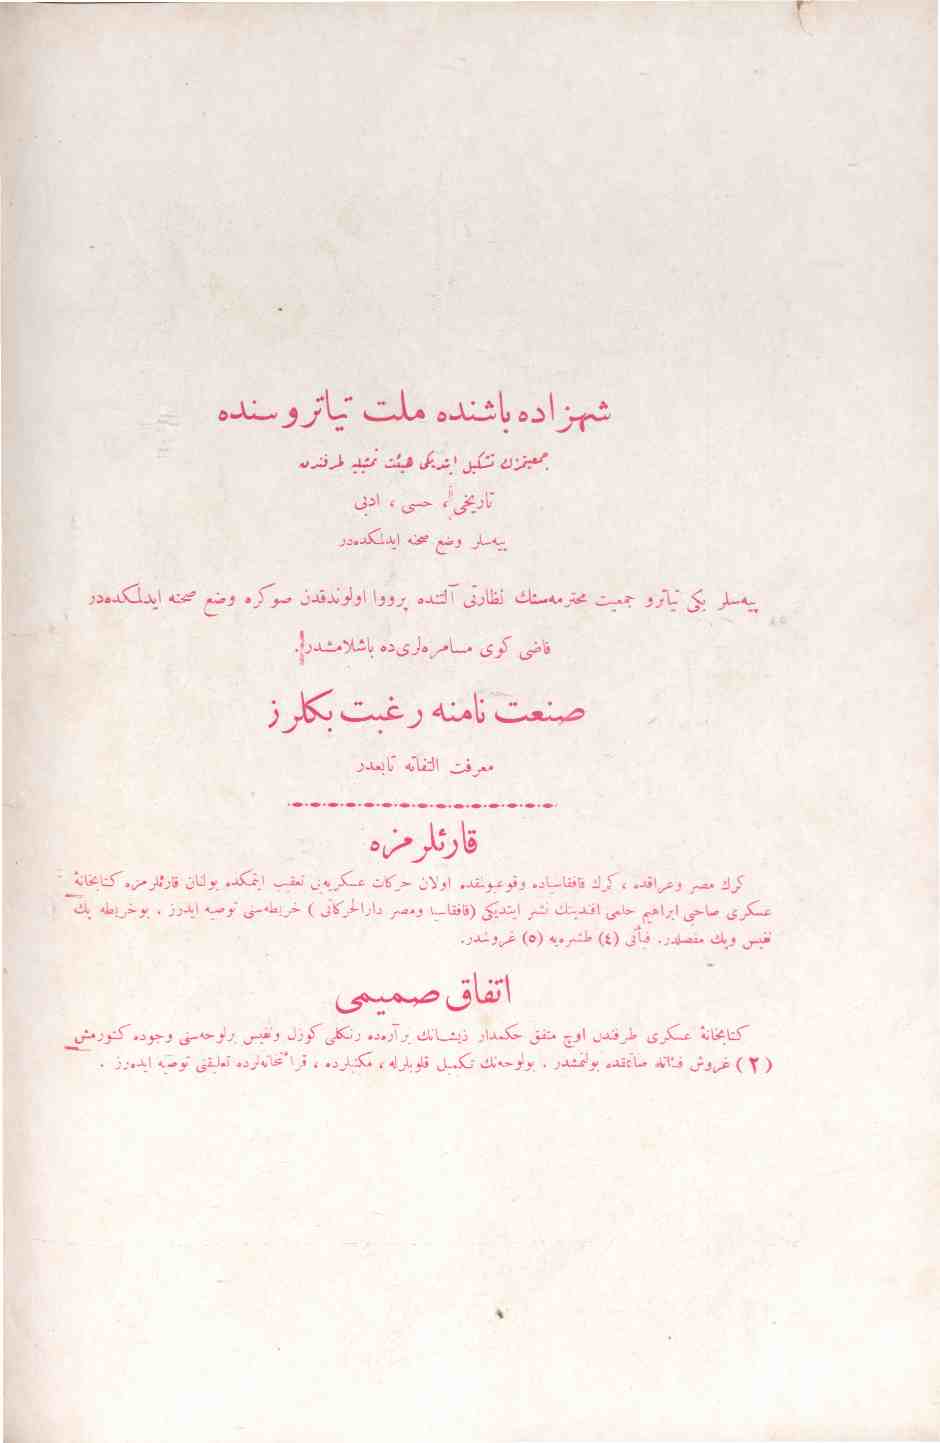 شهزاده باشنده ملت تياتروسنده
جمعيتمزك تشكيل ايتديكى هيئت تمثيليه طرفندن
تاريخى ، حسى ، ادبى
پيه‌سلر وضع صحنه ايدلمكده‌در
پيه‌سلر يكى تياترو جمعيت محترمه‌سنك نظارتى آلتنده پرووا اولوندقدن صوكره وضع صحنه ايدلمكده‌در
قاضى كوى مسامره‌لرى‌ده باشلامشدر.
صنعت نامنه رغبت بكلرز
معرفت التفاته تابعدر
قارئلرمزه
كرك مصر وعراقده ، كرك قافقاسياده وقوعبولمقده اولان حركات عسكريه‌يى تعقيب ايتمكده بولنان قارئلرمزه كتابخانۀ
عسكرى صاحبى ابراهيم حلمى افندينك نشر ايتديكى (قافقاسيا ومصر دارالحركاتى ) خريطه‌سنى توصيه ايدرز . بوخريطه پك
نفيس وپك مفصلدر. فيأتى (٤) طشره‌يه (٥) غروشدر.
اتفاق صميمى
كتابخانۀ عسكرى طرفندن اوچ متفق حكمدار ذيشانك برآره‌ده رنكلى كوزل ونفيس برلوحه‌سنى وجوده كتورمش
(٢) غروش فيأتله صاتلقده بولنمشدر . بولوحه‌نك تكميل قلوبلرله ، مكتبلرده ، قرائتخانه‌لرده تعليقنى توصيه ايده‌رز .